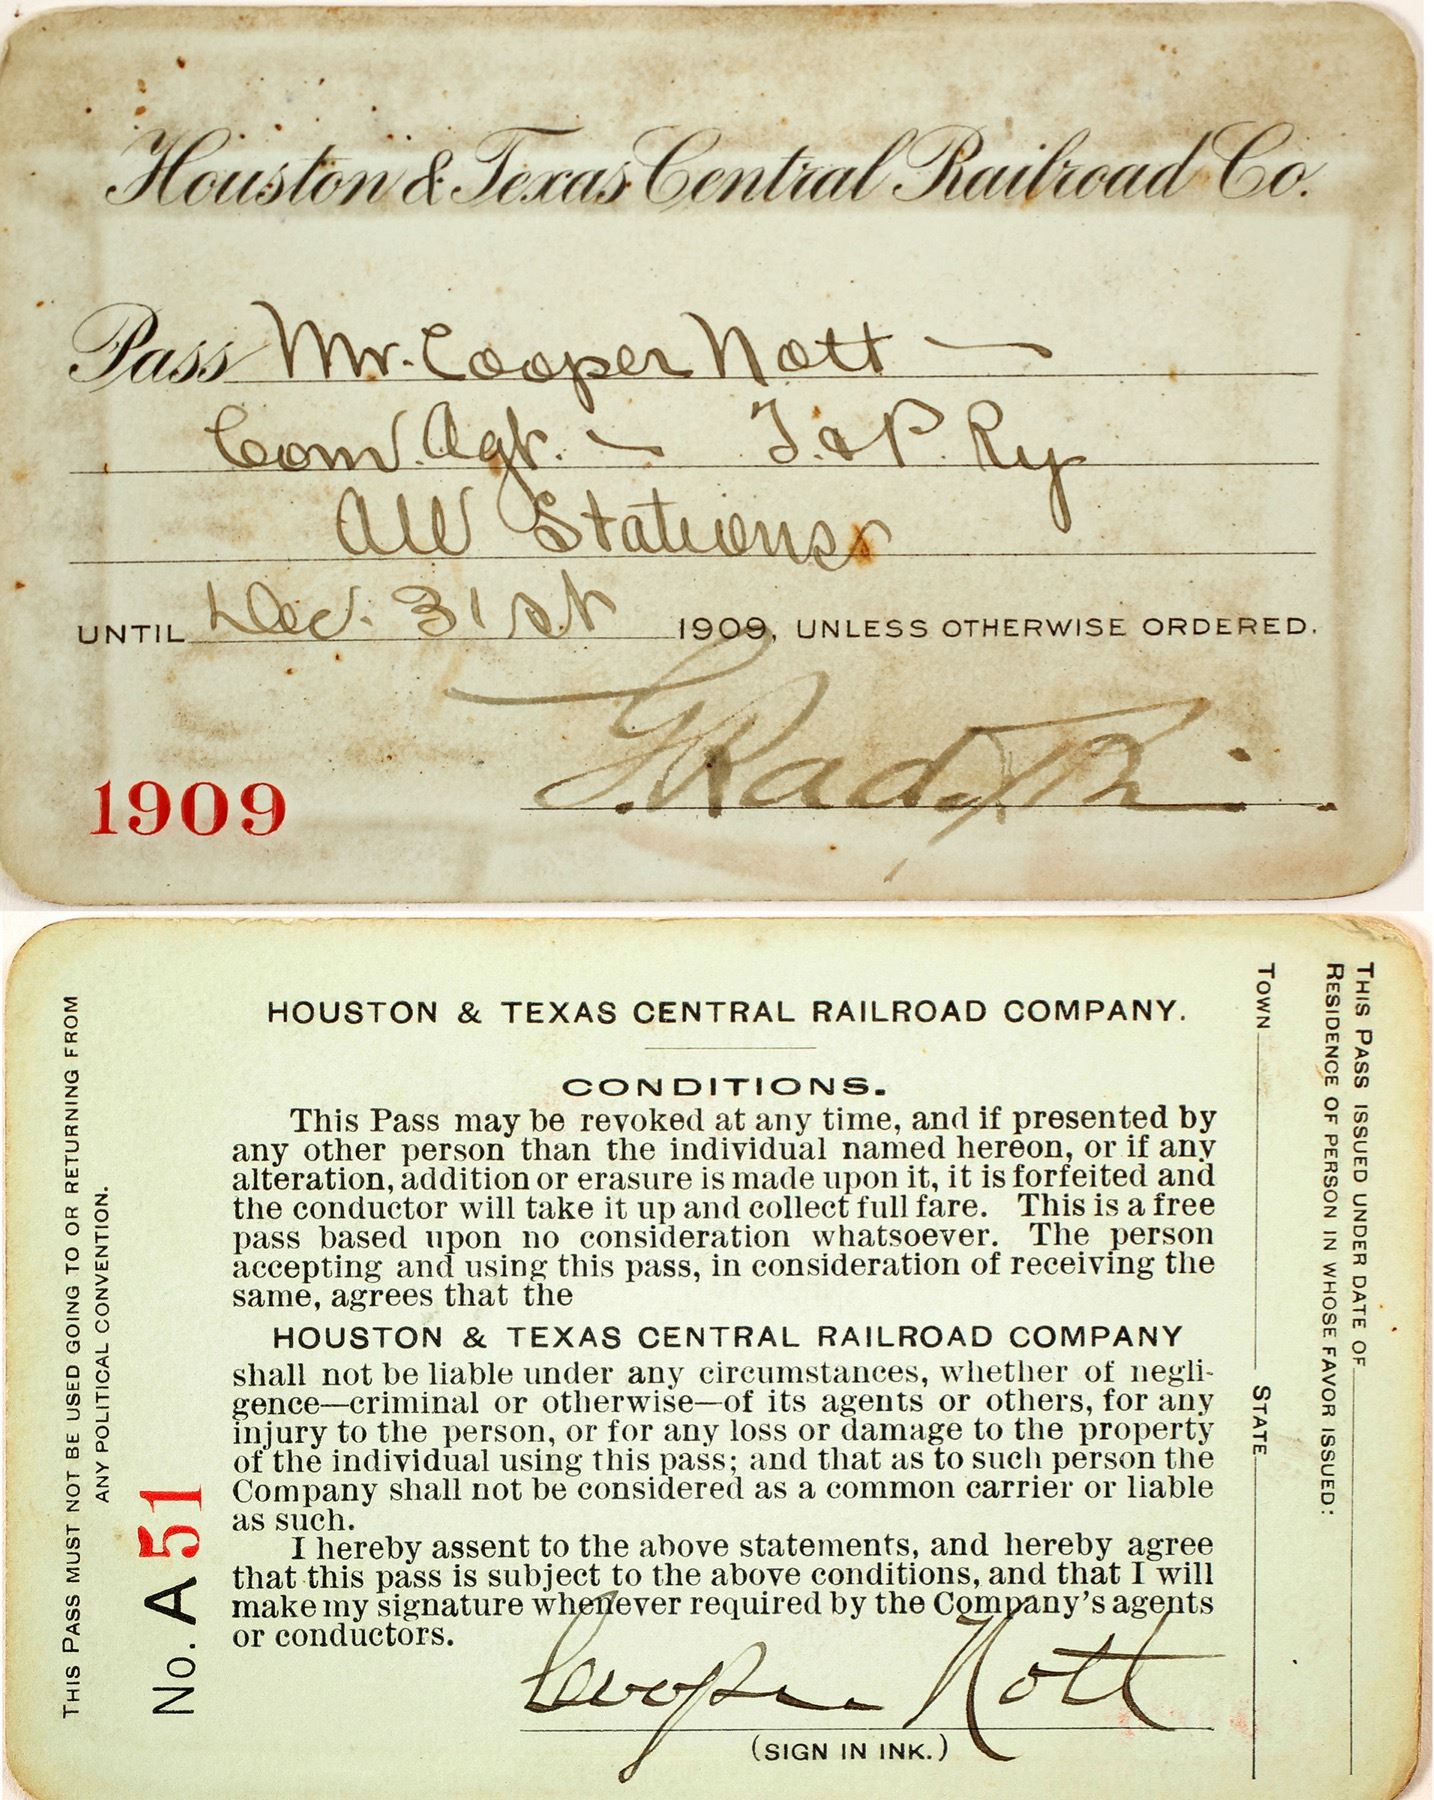 Houston & Texas Central Railroad Co.
Pass Mr. Cooper Nott
Com'. Agt. — T. & P. Ry
All Stations
UNTIL Dec. 31st 1909, UNLESS OTHERWISE ORDERED.
1909
HOUSTON & TEXAS CENTRAL RAILROAD COMPANY.
CONDITIONS.
This Pass may be revoked at any time, and if presented by
any other person than the individual named hereon, or if any
alteration, addition or erasure is made upon it, it is forfeited and
the conductor will take it up and collect full fare. This is a free
pass based upon no consideration whatsoever. The person
accepting and using this pass, in consideration of receiving the
same, agrees that the
HOUSTON & TEXAS CENTRAL RAILROAD COMPANY
shall not be liable under any circumstances, whether of negli-
gence—criminal or otherwise—of its agents or others, for any
injury to the person, or for any loss or damage to the property
of the individual using this pass; and that as to such person the
Company shall not be considered as a common carrier or liable
as such.
I hereby assent to the above statements, and hereby agree
that this pass is subject to the above conditions, and that I will
make my signature whenever required by the Company's agents
or conductors.
Cooper Nott
(SIGN IN INK.)
THIS PASS MUST NOT BE USED GOING TO OR RETURNING FROM
ANY POLITICAL CONVENTION.
No. A 51
THIS PASS ISSUED UNDER DATE OF
RESIDENCE OF PERSON IN WHOSE FAVOR ISSUED:
TOWN STATE